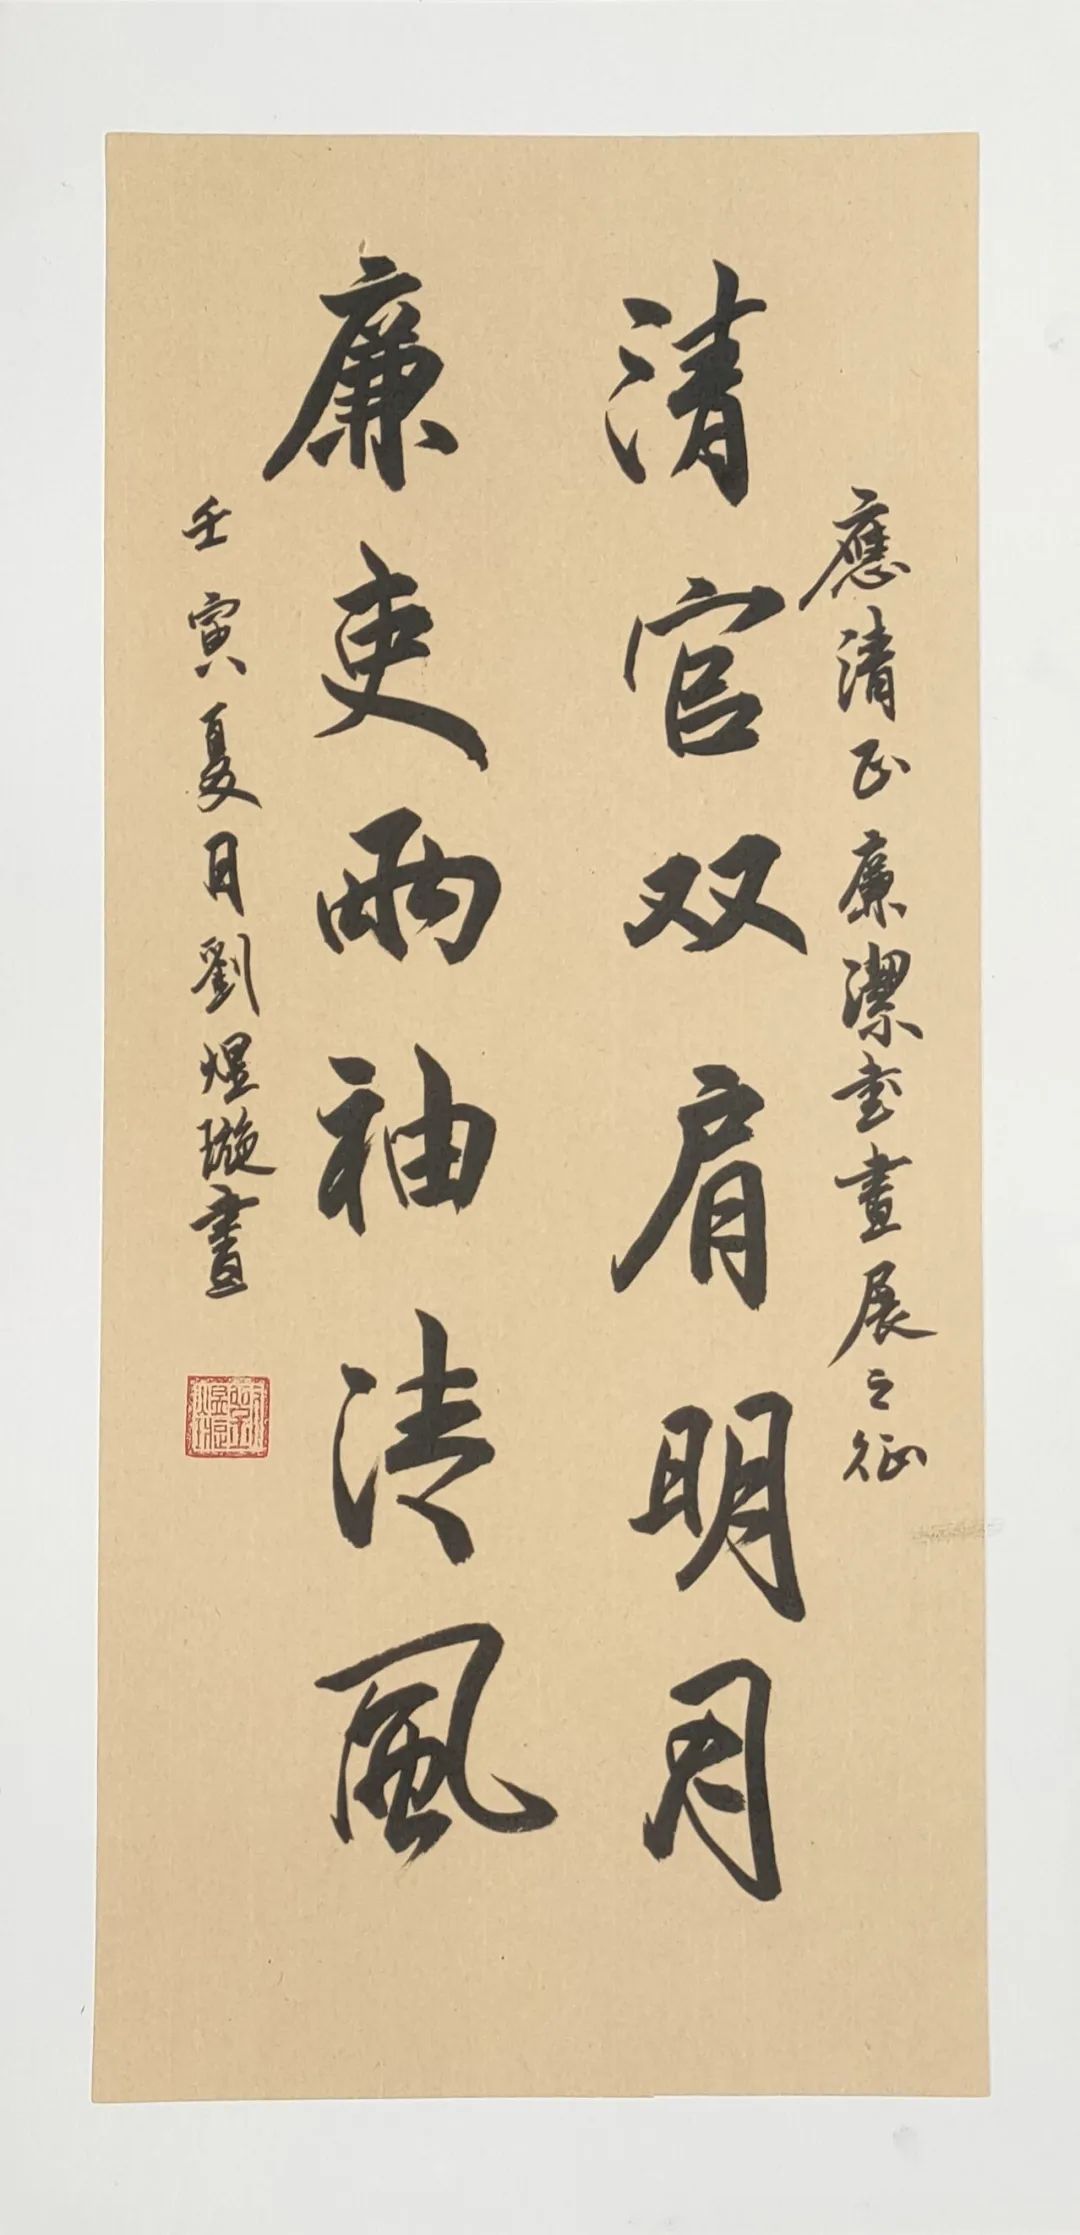 應清正廉潔书畫展之征
清官双肩明月
廉吏兩袖清風
壬寅夏月劉煜璇書